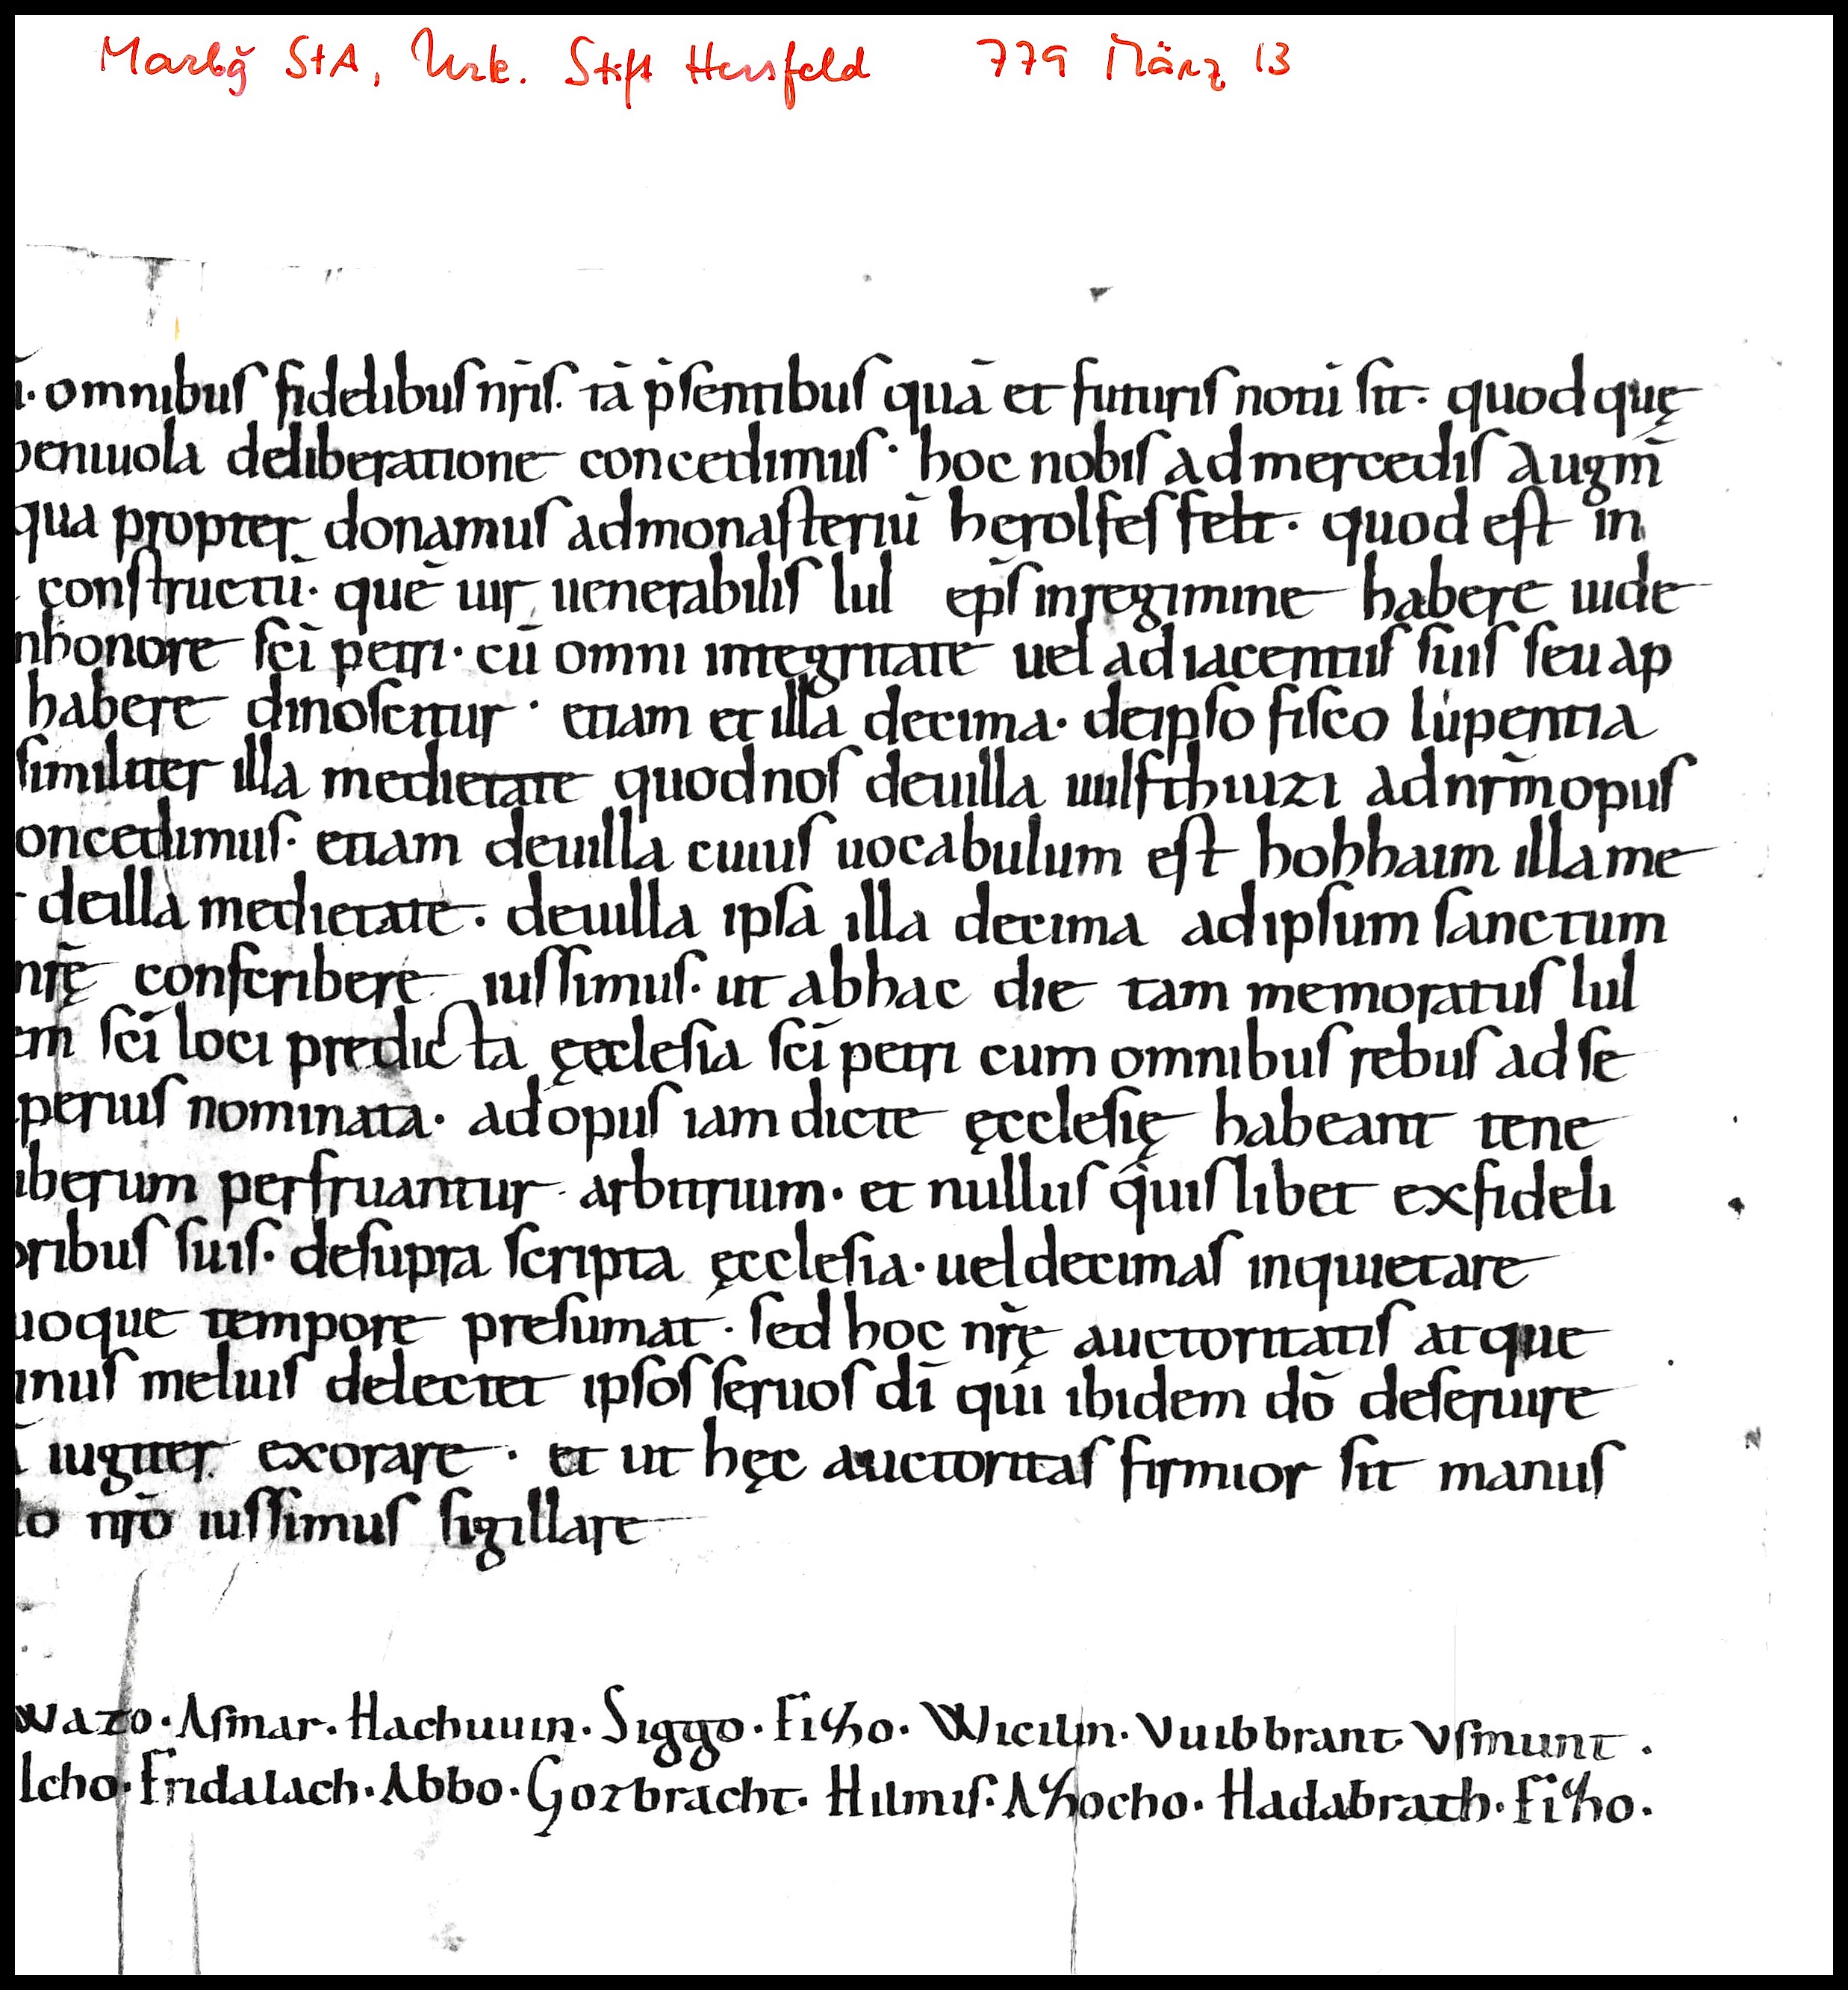 Marbg̃ StA, Urk. Stift Hersfeld 779 März 13
omnibus fidelibus nr̃is. tā p̄sentibus quā et futuris notū sit. quod quę
beniuola deliberatione concedimus · hoc nobis ad mercedis augm̄
qua propter donamus admonasteriū herolfesfelt. quod est in
constructū. quē uir uenerabilis lul ep̄s inregimine habere uide
nhonore sc̄i petri. cū omni integritate uel adiacentiis suis seu ap
habere dinoscitur · etiam et illa decima. deipso fisco lupentia
similiter illa medietate quodnos deuilla uulfthiuzi adnr̄m opus
oncedimus. etiam deuilla cuius uocabulum est hohhaim illa me
deilla medietate. deuilla ipsa illa decima adipsum sanctum
nr̃ę conscribere iussimus. ut abhac die tam memoratus lul
em sc̄i loci predicta ęcclesia sc̄i petri cum omnibus rebus ad se
perius nominata. ad opus iam dicte ęcclesię habeant tene
iberum perfruantur arbitrium. et nullus quislibet exfideli
oribus suis. desupra scripta ęcclesia. uel decimas inquietare
uoque tempore presumat. sed hoc nr̃ę auctoritatis atque
inus melius delectet ipsos seruos dī qui ibidem dō deseruire
iugiter exorare · et ut hęc auctoritas firmior sit manus
lo nr̄o iussimus sigillare
wazo. Asmar. Hachuuin. Siggo. Fitho. Wicilin. Vuibbrant. Vsmunt.
lcho. Fridalach. Abbo. Gozbracht. Hilmis. Athocho. Hadabrath. Fitho.